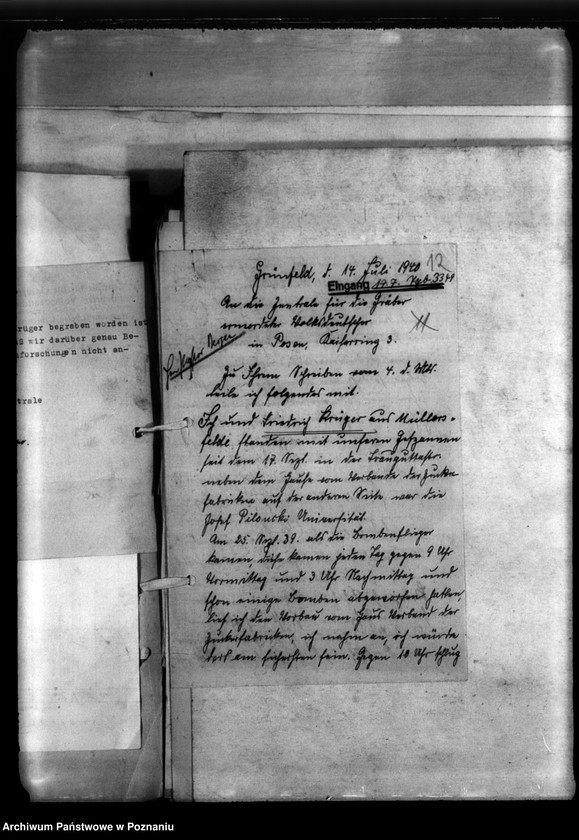 rüger begraben worden ist
ß wir darüber genau Be-
nforschungen nicht an-
trale
Grünfeld, d. 14. Juli 1940
12
Eingang 17.7.
An die Zentrale für die Gräber
ermordeter Volksdeutscher
in Posen, Kaiserring 3.
Zu Ihrem Schreiben vom 4. d. Mts.
teile ich folgendes mit.
Ich und Friedrich Krüger aus Müllers-
felde standen mit unseren Gespannen
seit dem 17. Sept. in der
neben dem Hause vom Verbande der Zucker
fabriken auf der anderen Seite war die
Josef Pilsudski Universität.
Am 25. Sept. 39. als die Bombenflieger
kamen diese kamen jeden Tag gegen 9 Uhr
Vormittag und 3 Uhr Nachmittag und
schon einige Bomben abgeworfen hatten
lief ich den Vorbau vom Haus Verband der
Zuckerfabriken, ich nahm an, ich würde
dort am sichersten sein. Gegen 10 Uhr schlug
Archiwum Państwowe w Poznaniu